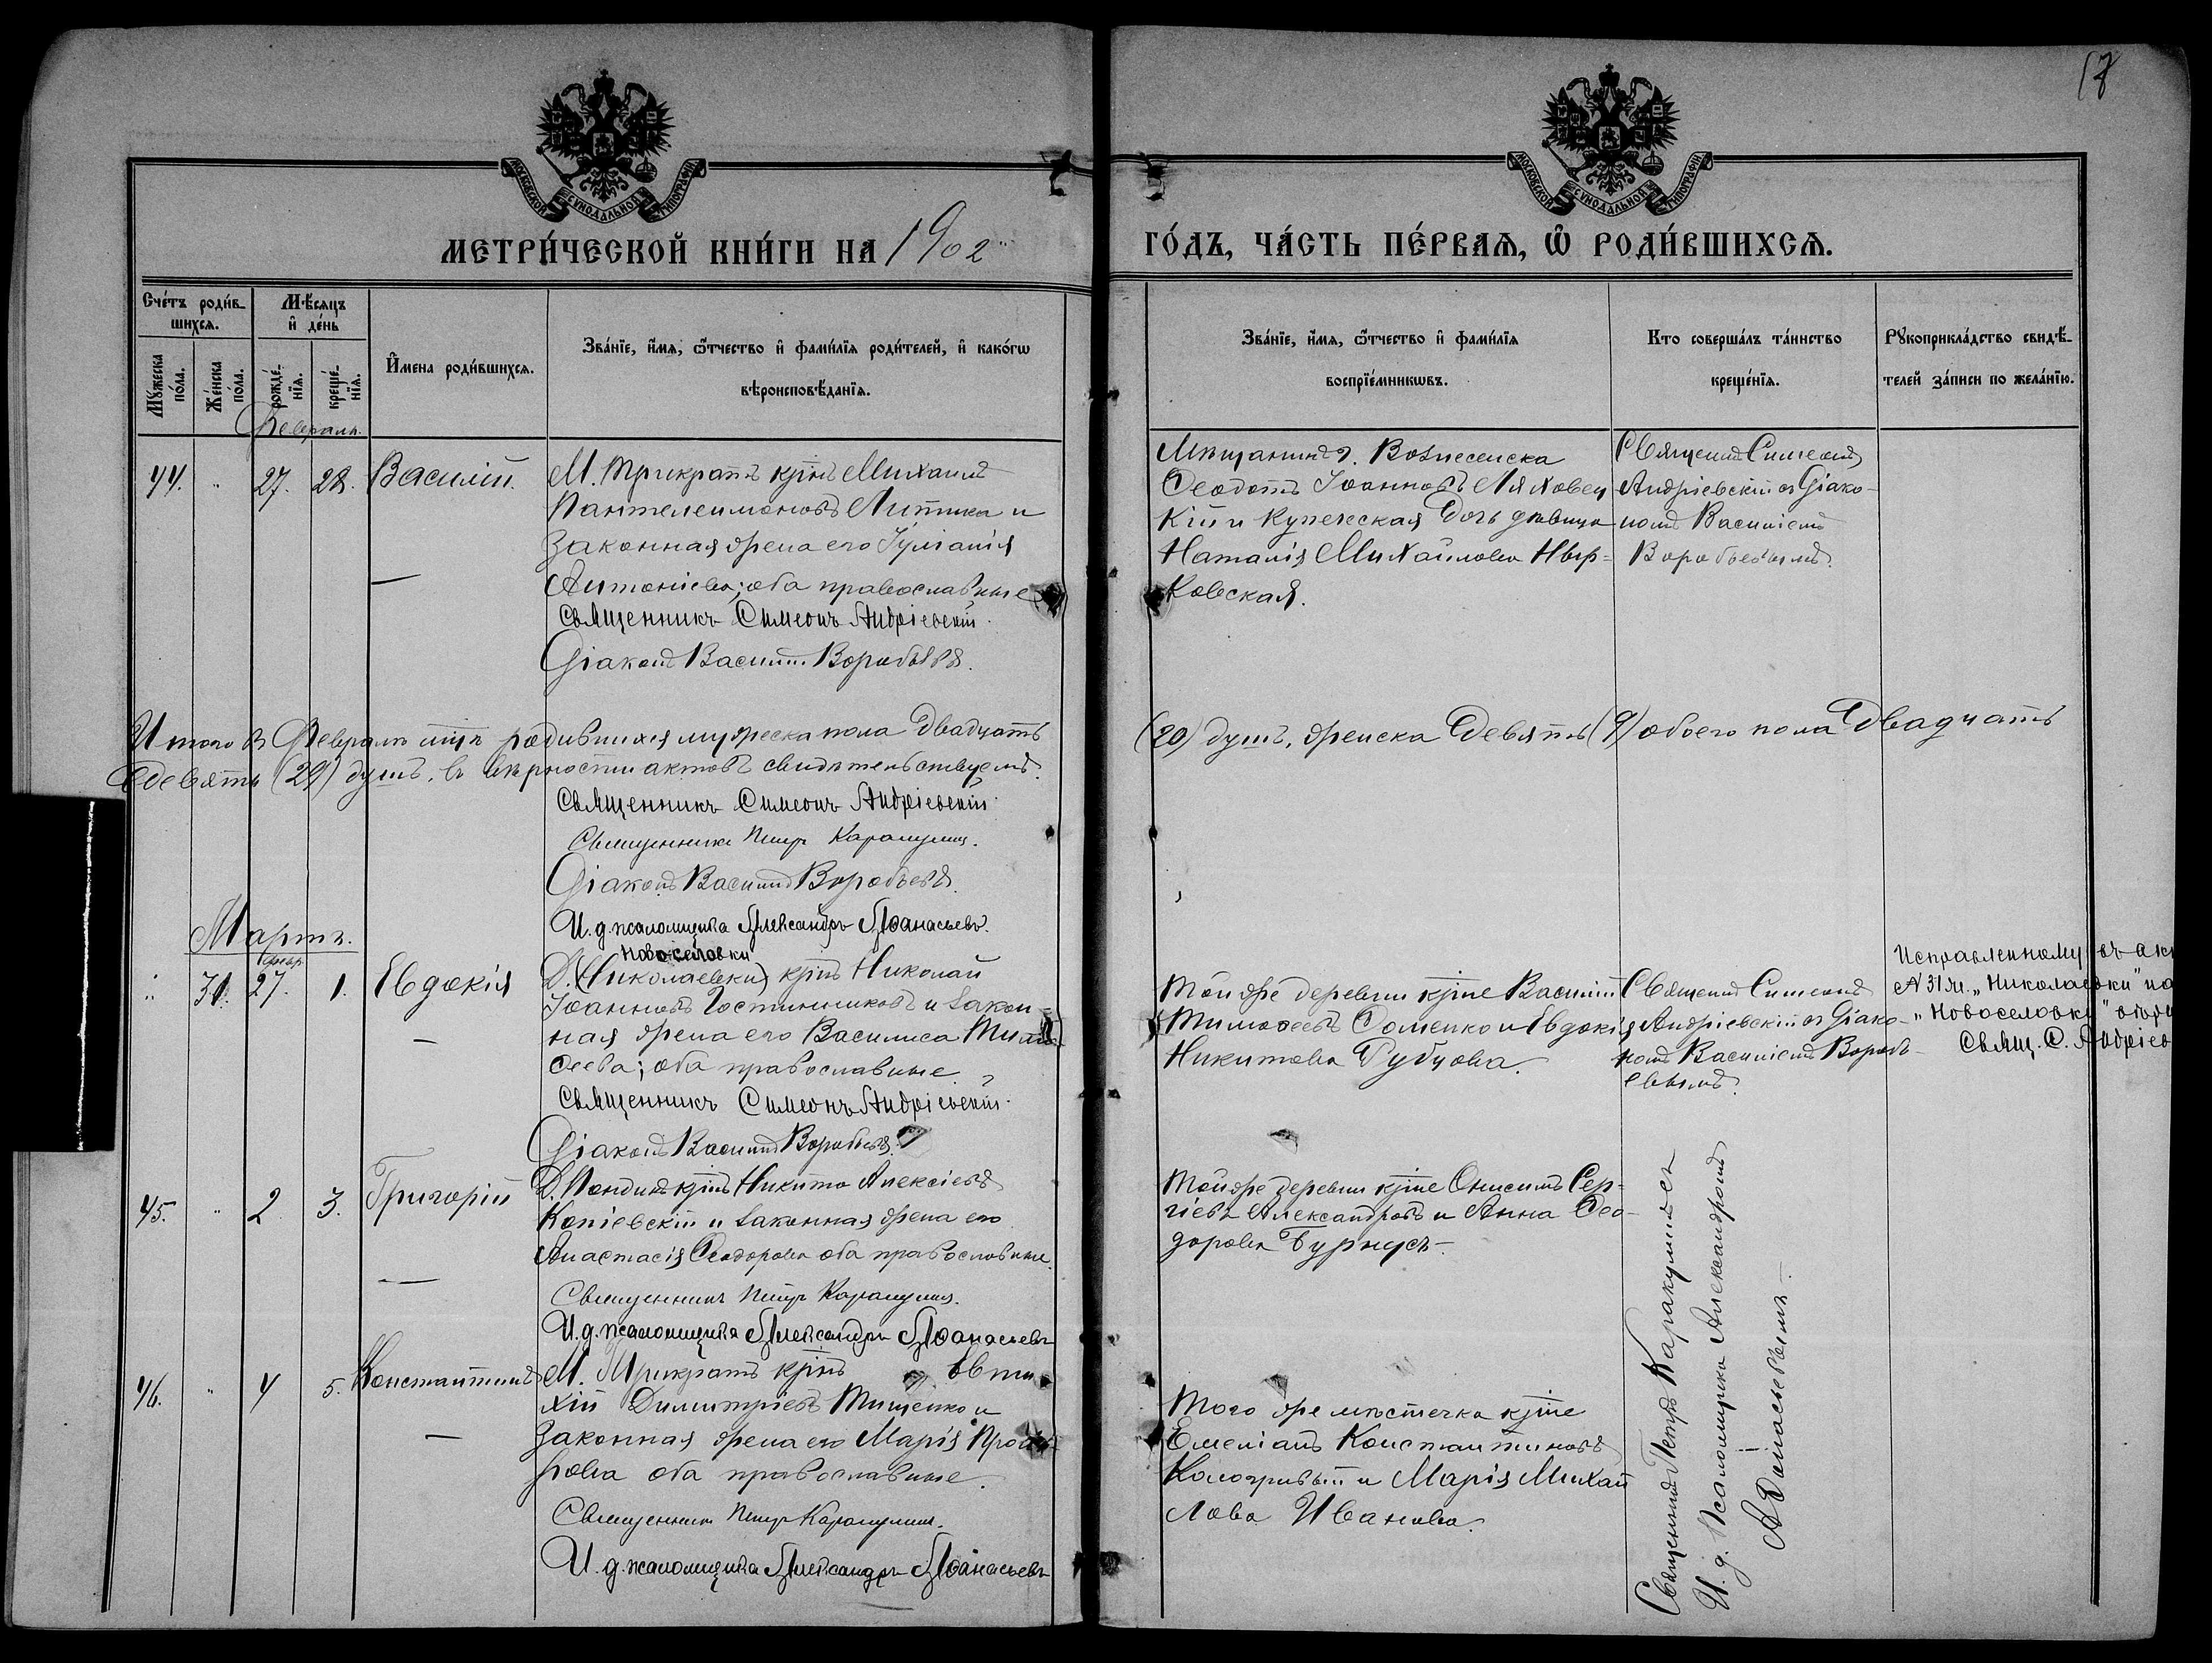 17
МОСКОВСКОЙ СѴНОДАЛЬНОЙ ТИПОГРАФІИ
МОСКОВСКОЙ СѴНОДАЛЬНОЙ ТИПОГРАФІИ
МЕТРИ́ЧЕСКОЙ КНИ́ГИ НА 1902
ГО́ДЪ, ЧА́СТЬ ПЕ́РВАѦ, Ѡ҆ РОДИ́ВШИХСѦ.
Сче́тъ роди́в-
шихсѧ.
Мꙋ́жеска по́ла.
Же́нска по́ла.
Мѣ́сяцъ
и҆ де́нь
рожде́-
нїѧ.
креще́-
нїѧ.
И҆мена роди́вшихсѧ.
Зва́нїе, и҆́мѧ, ѻ҆́тчество и҆ фами́лїѧ роди́телей, и҆ како́гѡ
вѣроисповѣ́данїѧ.
Зва́нїе, и҆́мѧ, ѻ҆́тчество и҆ фами́лїѧ
воспрїе́мникѡвъ.
Кто соверша́лъ та́инство
креще́нїѧ.
Рꙋкоприкла́дство свидѣ́-
телей за́писи по жела́нїю.
Февраль.
44. " 27. 28. Василій.
М. Трикратъ крнъ Михаилъ
Пантелеимоновъ Липтика и
законная жена его Іуліанія
Антоніева; оба православные
Священникъ Симеонъ Андріевскій.
Діаконъ Василій Воробьевъ.
Мѣщанинъ г. Вознесенска
Ѳеодотъ Іоанновъ Ляховец
кій и купеческая дочь дѣвица
Наталія Михайлова Ныр-
ковская.
Священникъ Симеонъ
Андріевскій съ Діако-
номъ Василіемъ
Воробьевымъ.
Итого въ Февралѣ мцѣ родившихся мужеска пола двадцать
(20) душъ, женска девять (9) обоего пола двадцать
девять (29) душъ, въ вѣрности актовъ свидѣтельствуемъ.
Священникъ Симеонъ Андріевскій.
Священникъ Петръ Каракулинъ.
Діаконъ Василій Воробьевъ.
И. д. псаломщика Александръ Аѳанасьевъ.
Мартъ.
февр.
" 31. 27. 1. Евдокія
Новоселовки
Д. (Николаевки) крнъ Николай
Іоанновъ Гостинниковъ и закон-
ная жена его Василиса Тимо-
ѳеева; оба православные.
Священникъ Симеонъ Андріевскій.
Діаконъ Василій Воробьевъ.
Той же деревни крне Василій
Тимоѳеевъ Фоменко и Евдокія
Никитова Рубцова.
Священникъ Симеонъ
Андріевскій съ Діако-
номъ Василіемъ Воробь-
евымъ.
Исправленному въ ак
№ 31 ж. "Николаевки" на
"Новоселовки"
Свящ. С. Андріев
45. " 2 3. Григорій
Д. крнъ Никита Алексіевъ
Копіевскій и законная жена его
Анастасія Ѳеодорова оба православные.
Священникъ Петръ Каракулинъ.
И. д. псаломщика Александръ Аѳанасьевъ
Той же деревни крне Онисимъ Сер-
гіевъ Александровъ и Анна Ѳео-
дорова Бурнусъ.
46. " 4 5. Константинъ
М. Трикратъ крнъ Евти-
хій Димитріевъ Тищенко и
законная жена его Марія
оба православные.
Священникъ Петръ Каракулинъ.
И. д. псаломщика Александръ Аѳанасьевъ
Того же мѣстечка крне
Емеліанъ Константиновъ
Кологривый и Марія Михай
лова Иванова.
Священникъ Петръ Каракулинъ съ
И. д. Псаломщика Александромъ
Аѳанасьевымъ.